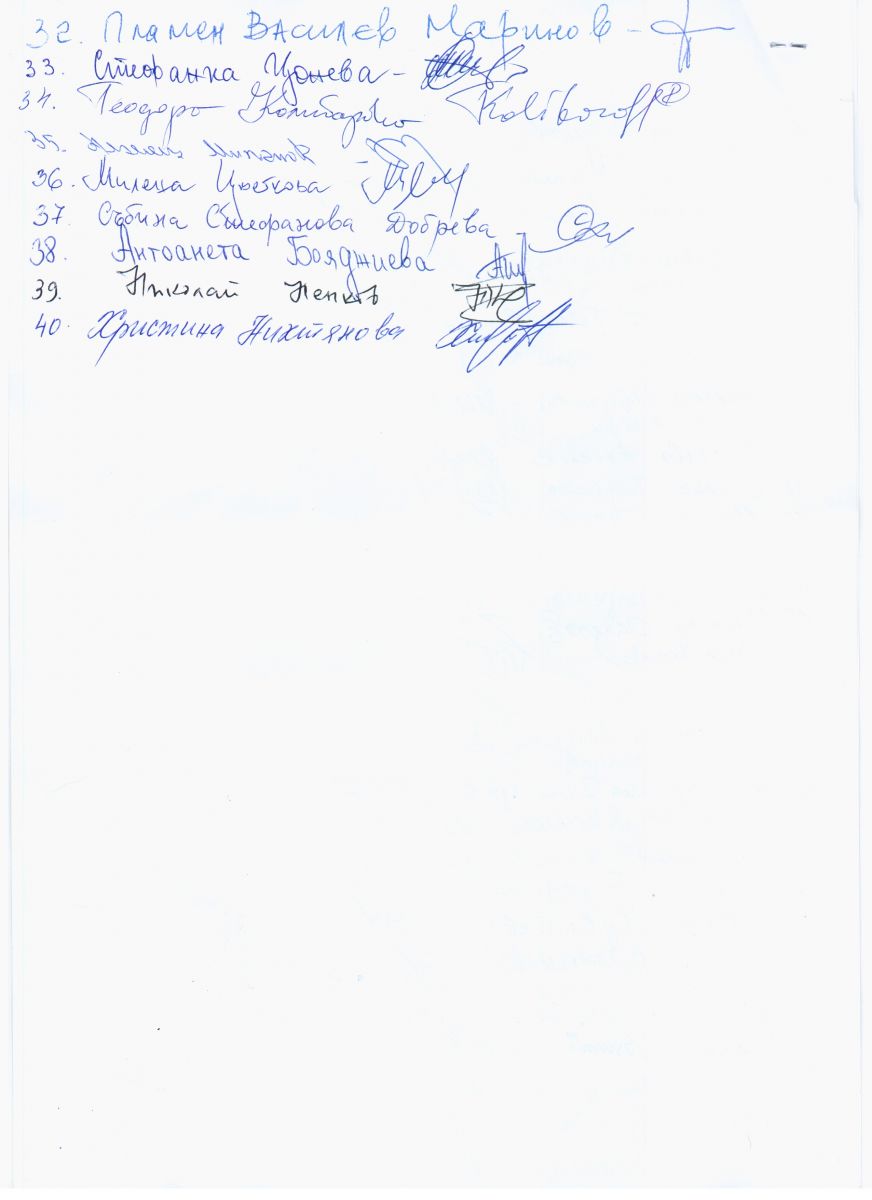 32. Пламен Василев Маринов -
33. Стефанка Цонева -
34. Теодоро Koliboroff ®
35.
36. Милена Цветкова
37. Събина Стефанова Добрева
38. Антоанета Бояджиева
39. Николай Пенков
40. Христина Нихтянова